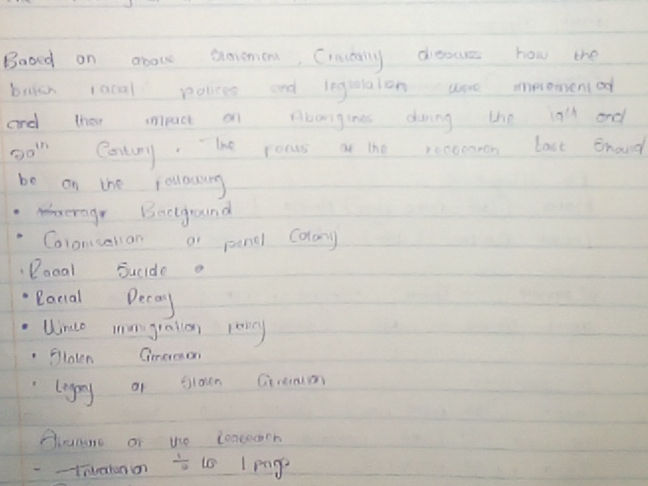 Based on above Statement, Critically discuss how the
british racial polices and legislation were implemented
and their impact on Aborigines during the 19th and
20th Century. The focus of the research task should
be on the following
• Background
• Colonisation or penel Colony
• Racial Sucide
• Racial Decay
• White immigration policy
• Stolen Generation
• Legacy of Stolen Generation
Structure of the research
- ½ to 1 page